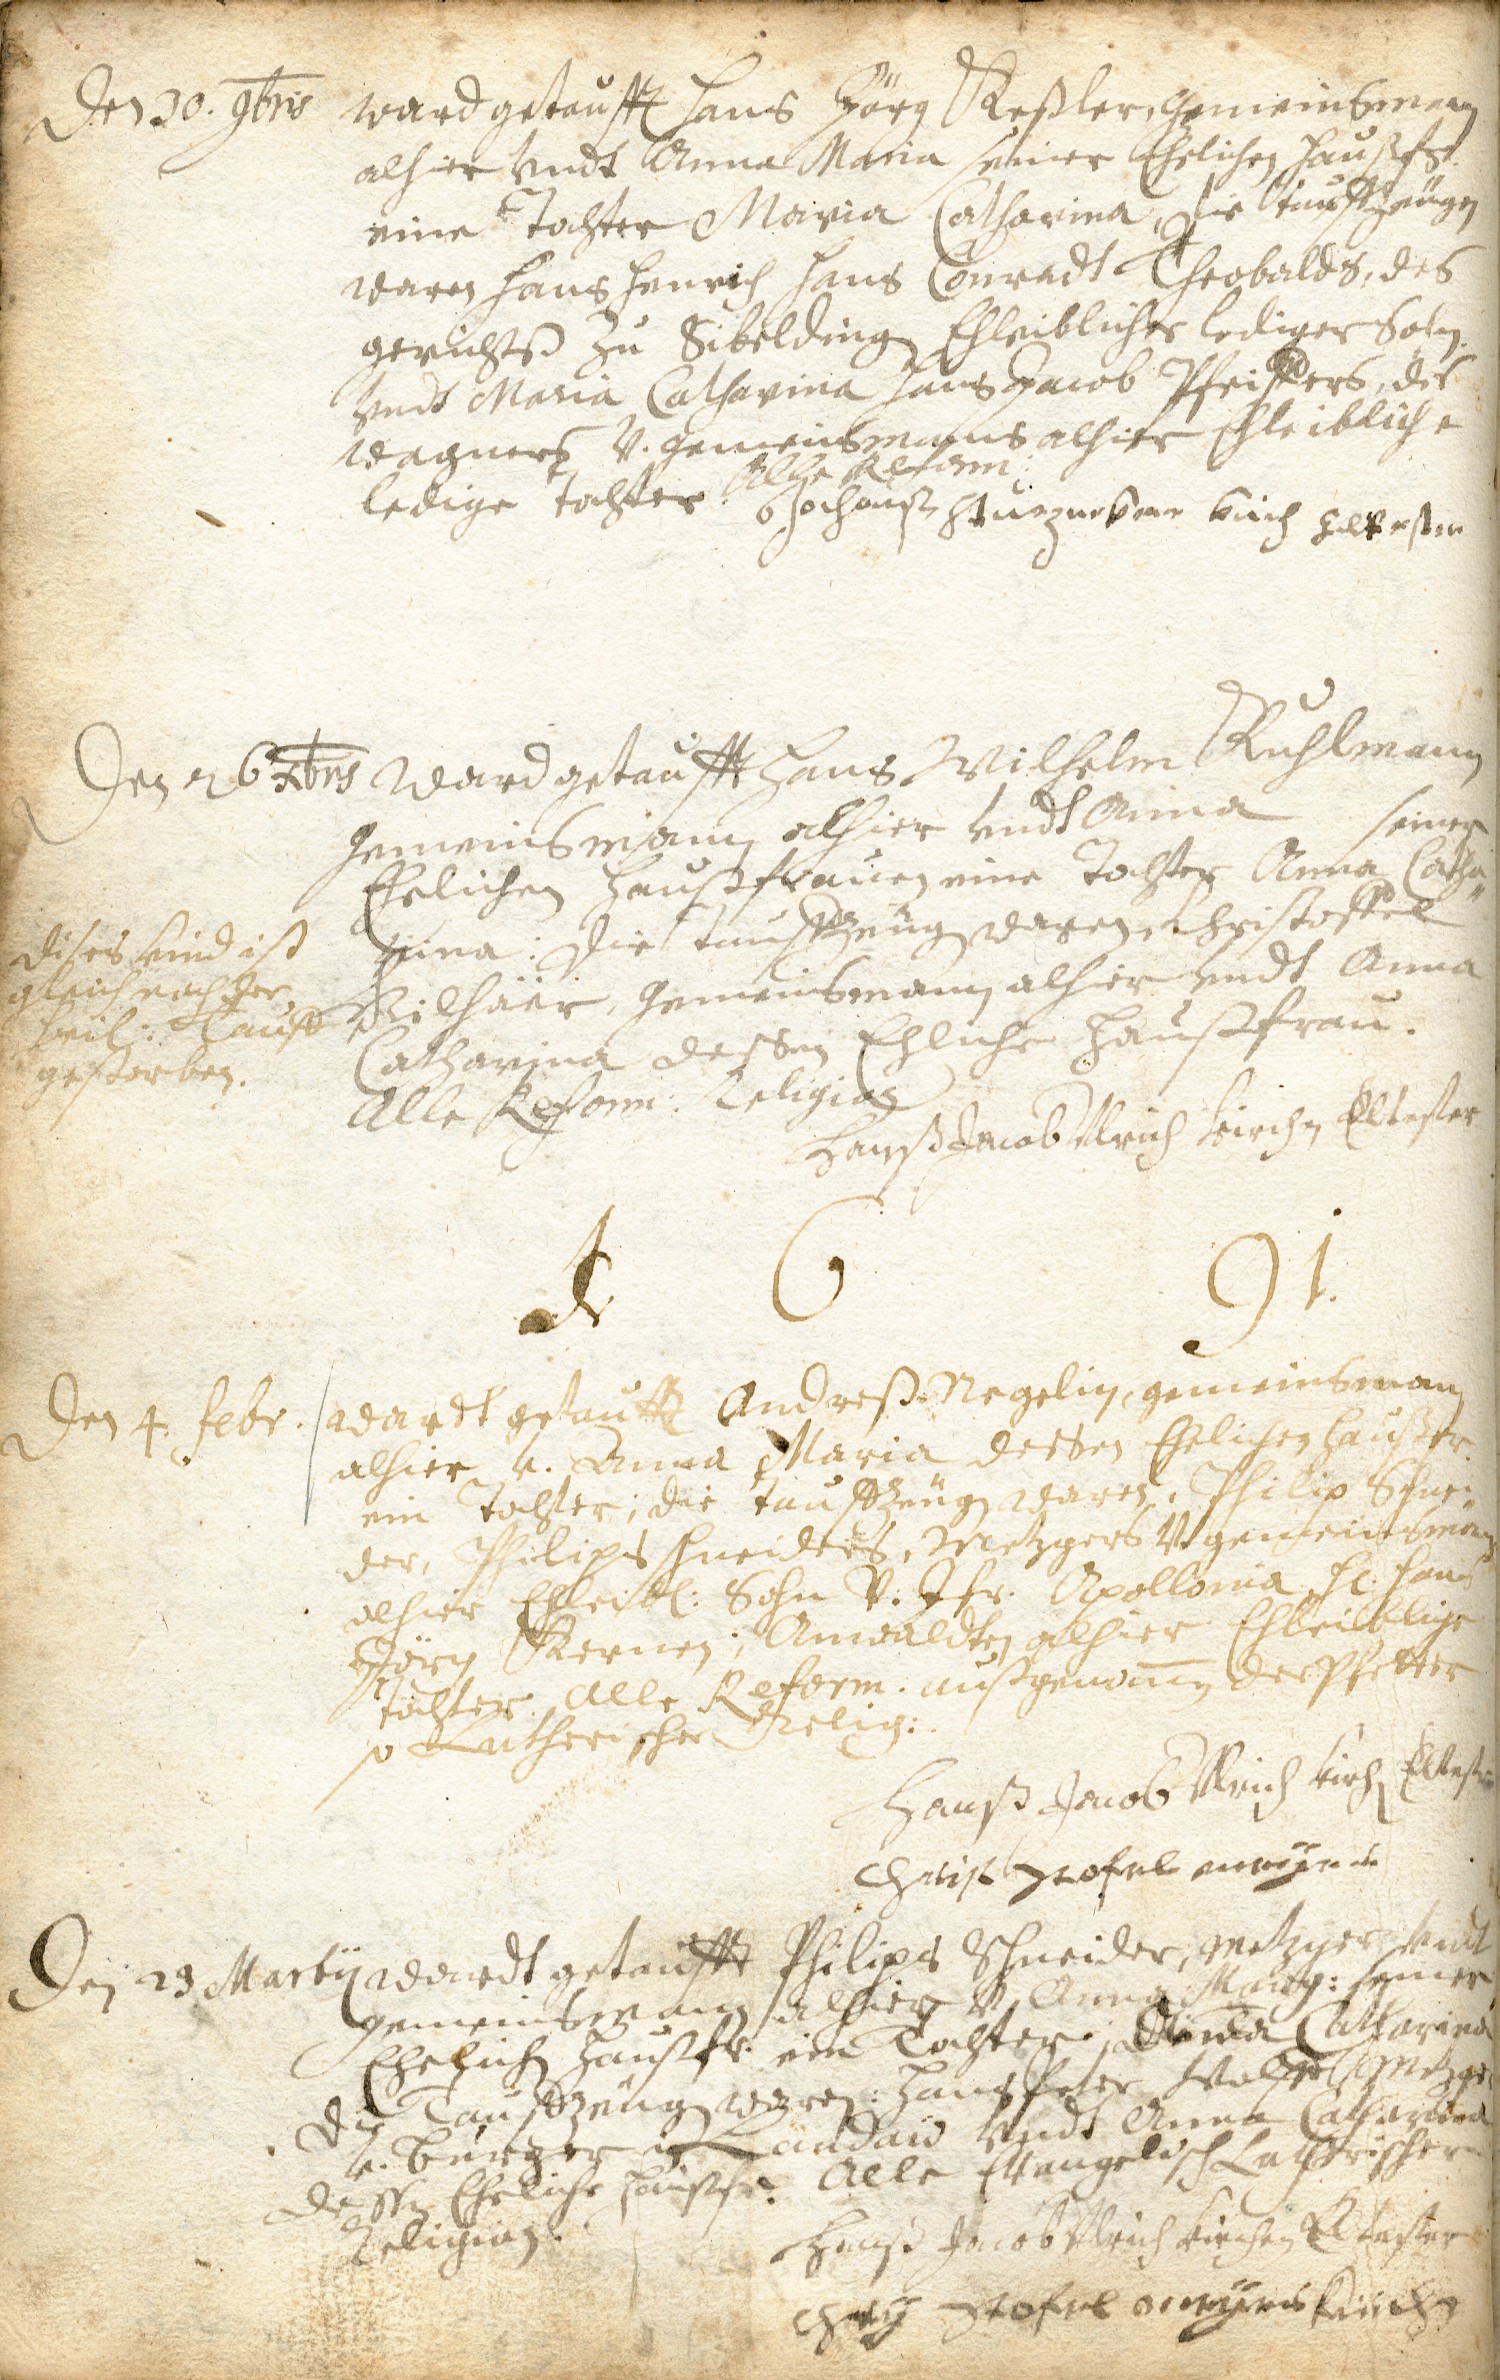 Den 30. 9bris ward getaufft Hans Görg Keßler, Gemeinsmann
alhier undt Anna Maria seiner Ehelichen Haußfr.
eine Tochter Maria Catharina, die tauffzeügen
waren Hans Henrich Hans Conradt Theobalds, des
gerichtß zu Sibelding Ehleiblicher lediger Sohn.
Undt Maria Catharina Hans Jacob Pfeiffers, des
Wagners V. Gemeinsmans alhier Ehleibliche
ledige Tochter. Alle Reform:
kirch Eltester
Den 26 Xbris Ward getaufft Hans Wilhelm Kuhlmann
Gemeinsmann alhier undt Anna seiner
Ehelichen Haußfrauen eine Tochter Anna Catha
rina: Die tauffzeüg waren, Christoffel
Gemeinsmann alhier undt Anna
Catharina dessen Ehliche Haußfrau.
Alle Reform: Religion
dises kind ist
gleich nach der
heil: Tauff
gestorben.
Hanß Jacob Ulrich kirchen Eltester
1 6 91.
Den 4. febr. wardt getaufft Andreß Negelin, gemeinsmann
alhier v. Anna Maria dessen Ehelichen Haußfr.
ein Tochter; die tauffzeüg waren, Philip Schnei
der, Philips schneiders, Metzgers V. gemeinsmans
alhier Ehleibl: Sohn V. Jfr. Apollonia, H. Hans
Görg Kernen; Anwaldten alhier Ehleiblige
tochter. Alle Reform. außgenomen der Pfetter
so Lutherischer Relig:
Hanß Jacob Ulrich kirch Eltester
Den 23 Martij wardt getaufft Philips Schneider, metzger undt
gemeinsmann alhier V. Anna Marg: seiner
Ehelich Haußfr. ein Tochter; Anna Catharina
Die Tauffzeüg waren: Hans Peter metzger
v. burger Landau undt Anna Catharina
dessen Eheliche haußfr. Alle Evangelisch Lutherischer
Religion.
Hanß Jacob Ulrich kirchen Eltester